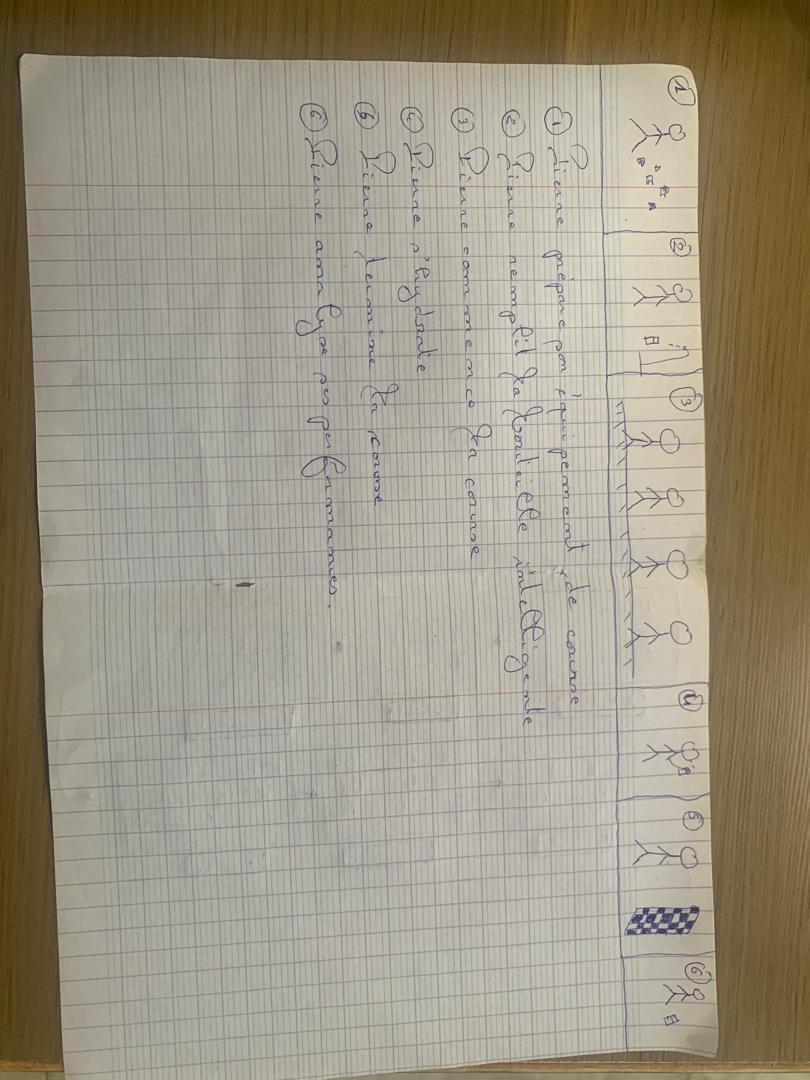 1 2 3 4 5 6
1 Pierre prépare son équipement de course
2 Pierre remplit la bouteille intelligente
3 Pierre commence la course
4 Pierre s'hydrate
5 Pierre termine la course
6 Pierre analyse ses performances.